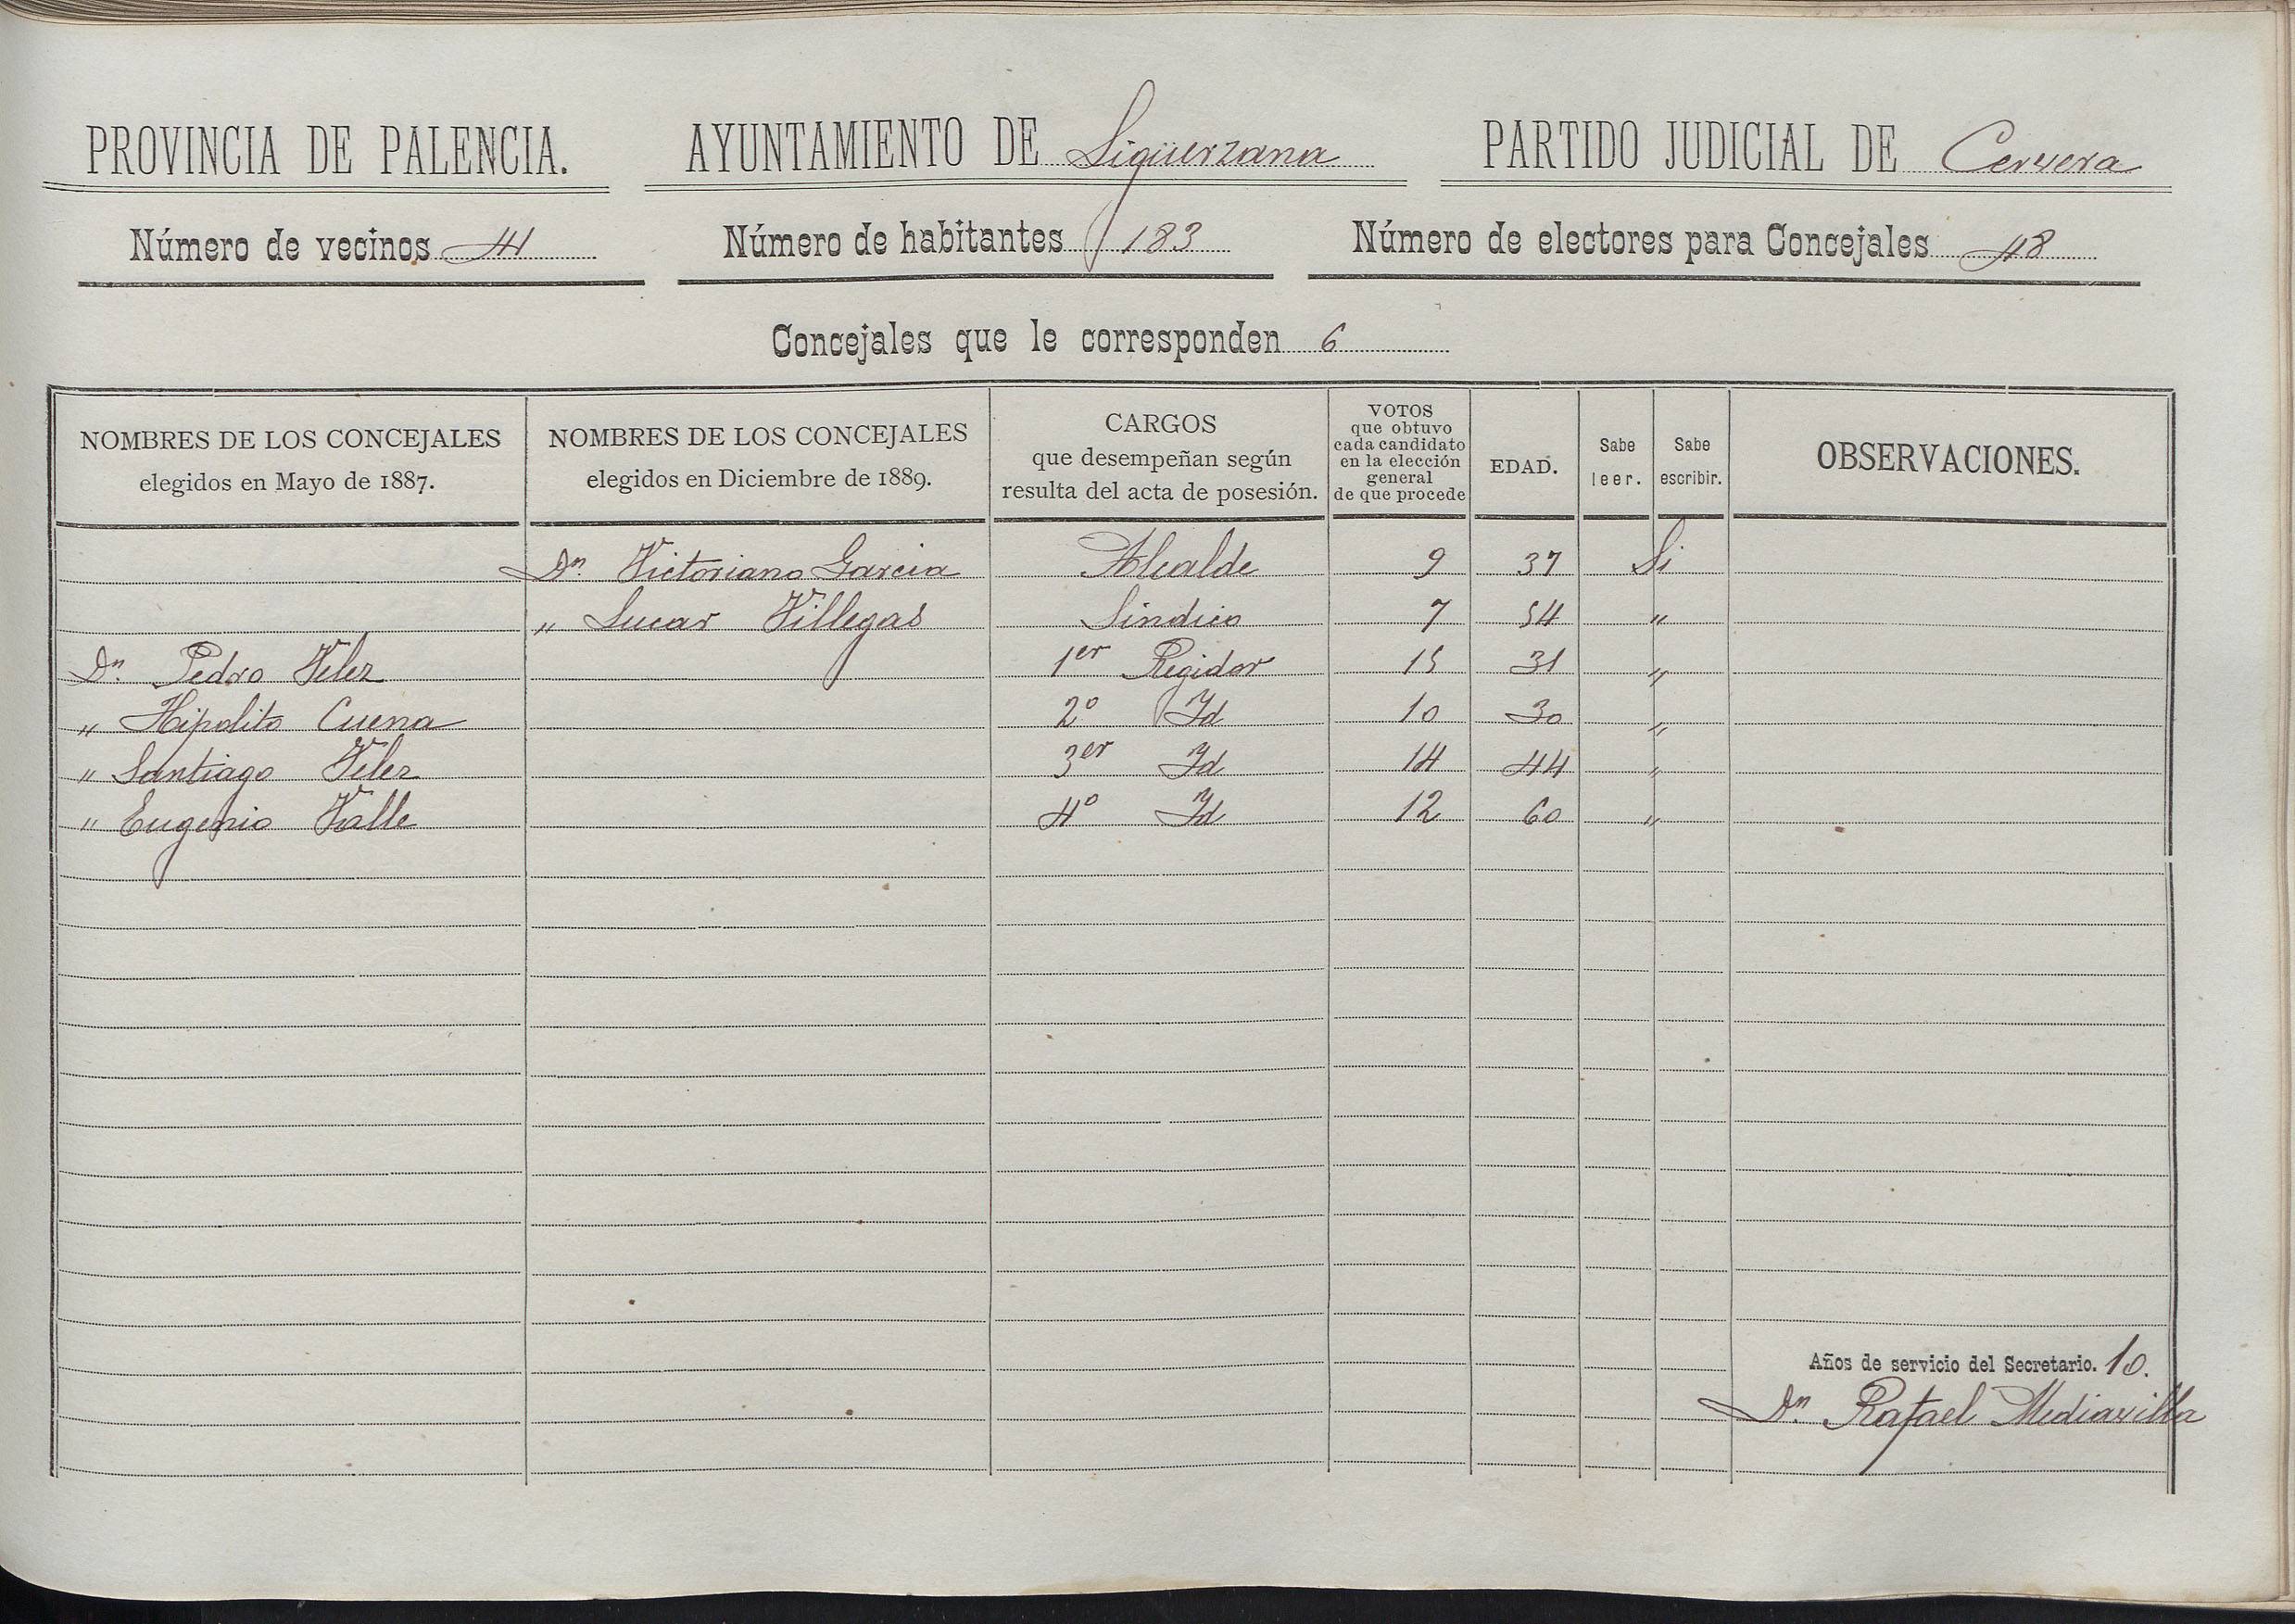 PROVINCIA DE PALENCIA. AYUNTAMIENTO DE Sigüerzana PARTIDO JUDICIAL DE Cervera
Número de vecinos 41 Número de habitantes 183 Número de electores para Concejales 48
Concejales que le corresponden 6
NOMBRES DE LOS CONCEJALES elegidos en Mayo de 1887. NOMBRES DE LOS CONCEJALES elegidos en Diciembre de 1889. CARGOS que desempeñan según resulta del acta de posesión. VOTOS que obtuvo cada candidato en la elección general de que procede EDAD. Sabe leer. Sabe escribir. OBSERVACIONES.
Dn. Victoriano Garcia Alcalde 9 37 Si
" Lucas Villegas Sindico 7 54 "
Dn. Pedro Velez 1er Regidor 15 31 "
" Hipolito Cuena 2º Id 10 30 "
" Santiago Velez 3er Id 14 44 "
" Eugenio Valle 4º Id 12 60 "
Años de servicio del Secretario. 10.
Dn Rafael Mediavilla